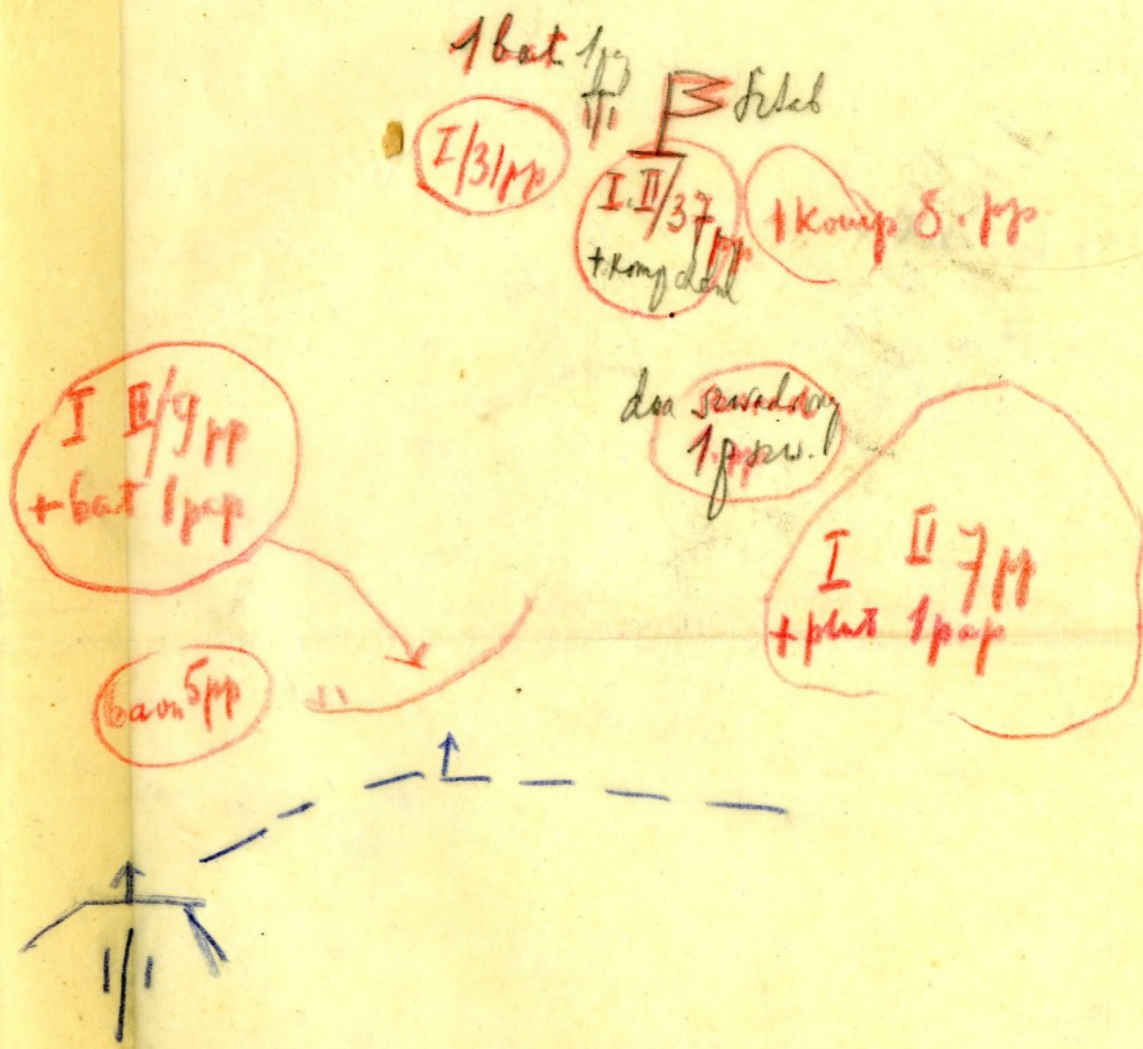 1 bat 1 pg
Sztab
I/31 pp
I. II/37 pp
+ Komp
1 Komp 5. pp
dwa szwadrony
1.
I II/9 pp
+ bat 1 pap
I II 7 pp
+ plut 1 pap
baon 5 pp